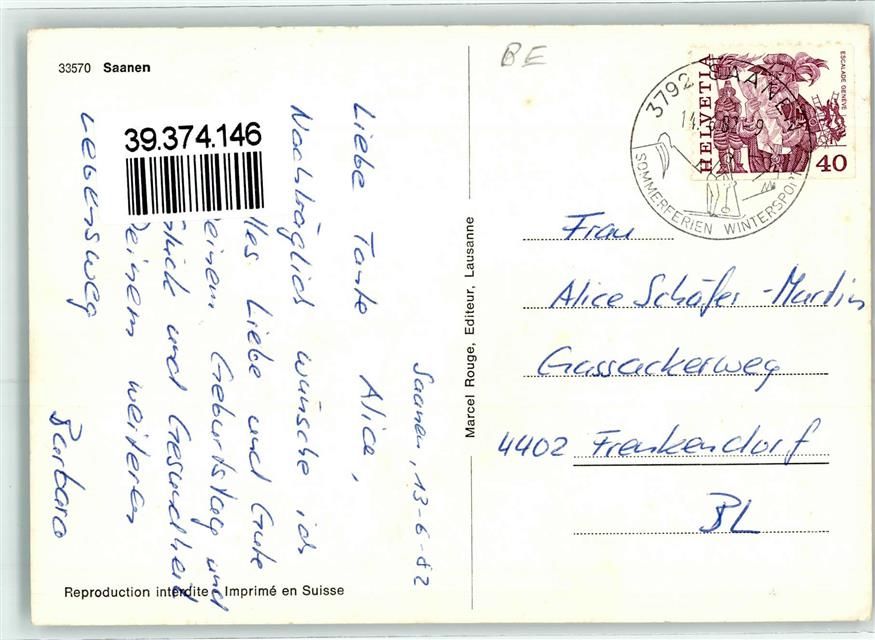 33570 Saanen
39.374.146
Saanen, 13-6-82
Liebe Tante Alice,
Nachträglich wünsche ich
lles Liebe und Gute
einem Geburtstag und
lück und Gesundheit
einem weiteren
Lebensweg
Barbara
Reproduction interdite - Imprimé en Suisse
Marcel Rouge, Editeur, Lausanne
BE
HELVETIA
ESCALADE GENÈVE
40
3792 SAANEN
SOMMERFERIEN WINTERSPORT
Frau
Alice Schäfer-Martin
Gassackerweg
4402 Frenkendorf
BL